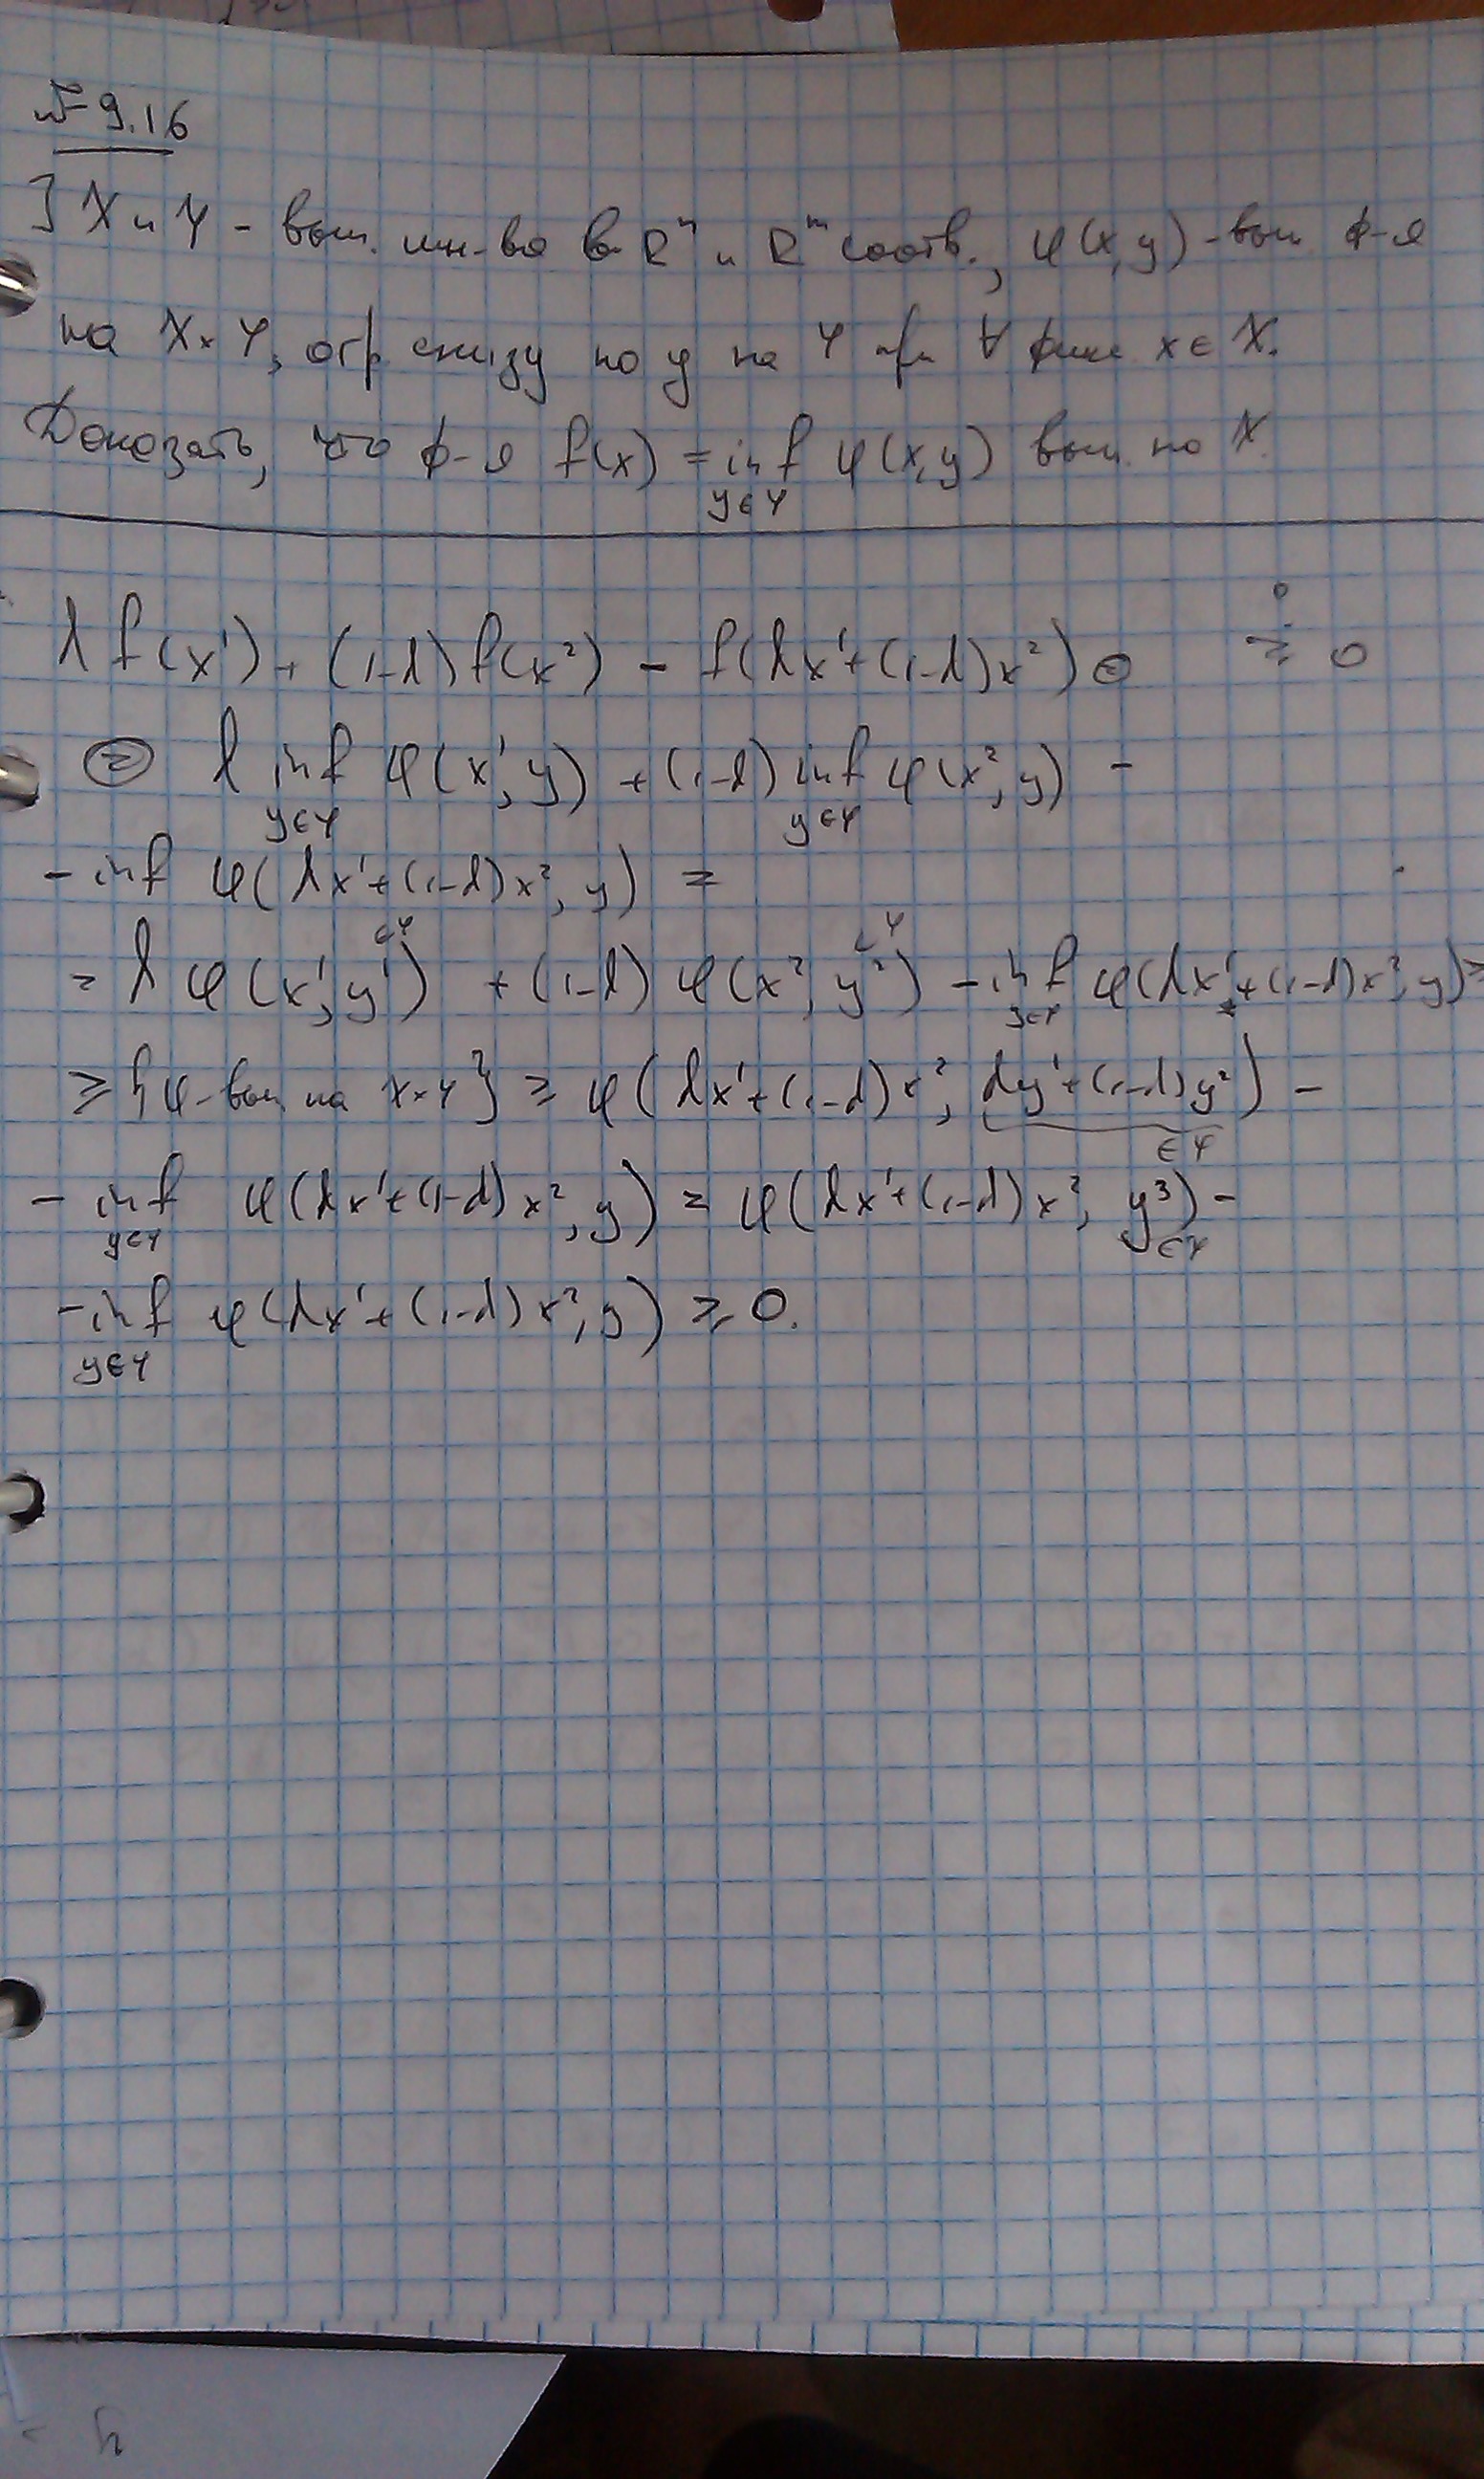 № 9.16
] X и Y - вып. мн-ва в Rⁿ и Rᵐ соотв., φ(x,y) - вып ф-я
на X×Y, огр снизу по y на Y при ∀ фикс x∈X.
Доказать, что ф-я f(x) = inf φ(x,y) вып. на X.
y∈Y
λf(x¹)+(1-λ)f(x²) - f(λx¹+(1-λ)x²) ⊜ ≥ 0
⊜ λ inf φ(x¹,y) + (1-λ) inf φ(x²,y) -
y∈Y y∈Y
- inf φ(λx¹+(1-λ)x², y) =
∈Y ∈Y
= λ φ(x¹,y¹) + (1-λ) φ(x²,y²) - inf φ(λx¹+(1-λ)x², y) ≥
y∈Y
≥ {φ-вып на X×Y} ≥ φ(λx¹+(1-λ)x², λy¹+(1-λ)y²) -
∈Y
- inf φ(λx¹+(1-λ)x², y) = φ(λx¹+(1-λ)x², y³) -
y∈Y ∈Y
- inf φ(λx¹+(1-λ)x², y) ≥ 0.
y∈Y